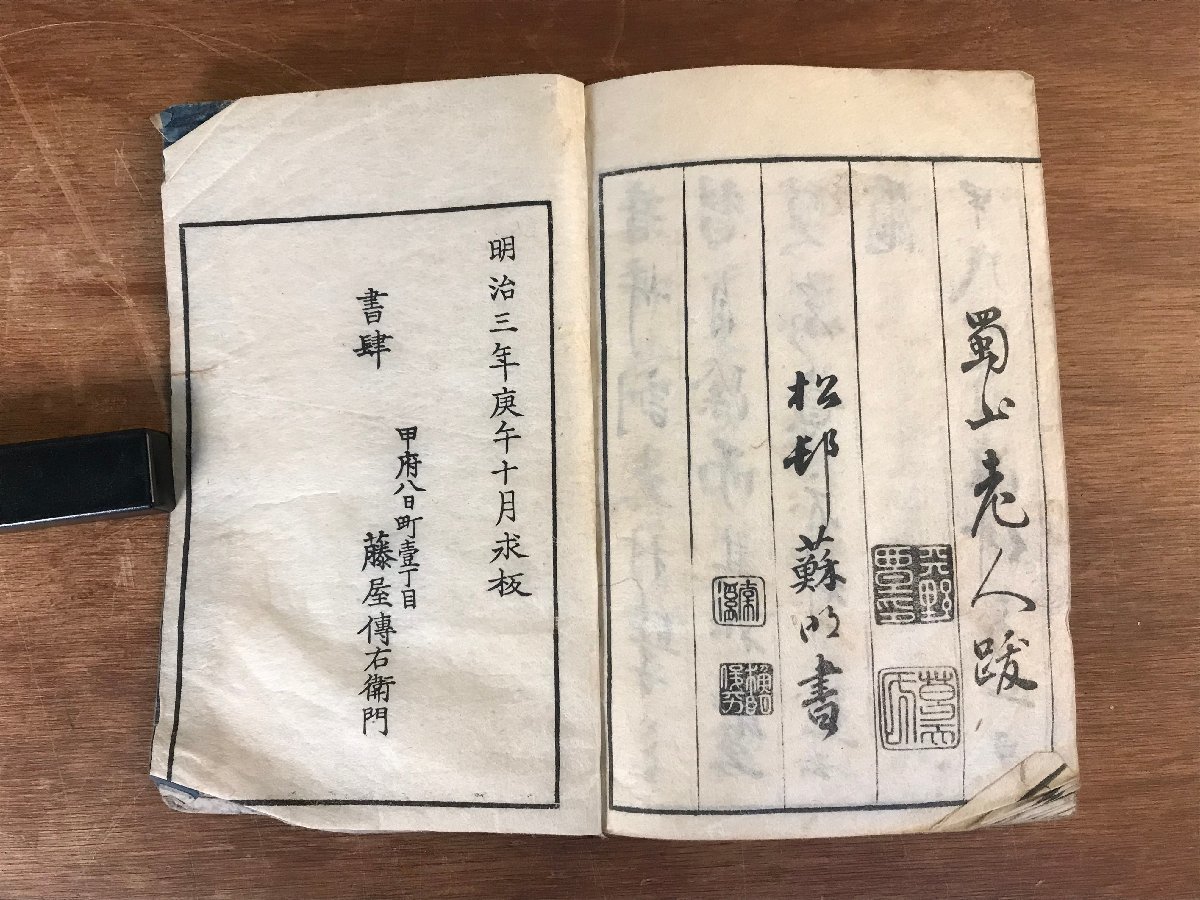 蜀山老人跋
松邨蘇明書
明治三年庚午十月求板
書肆
甲府八日町壹丁目
藤屋傳右衛門